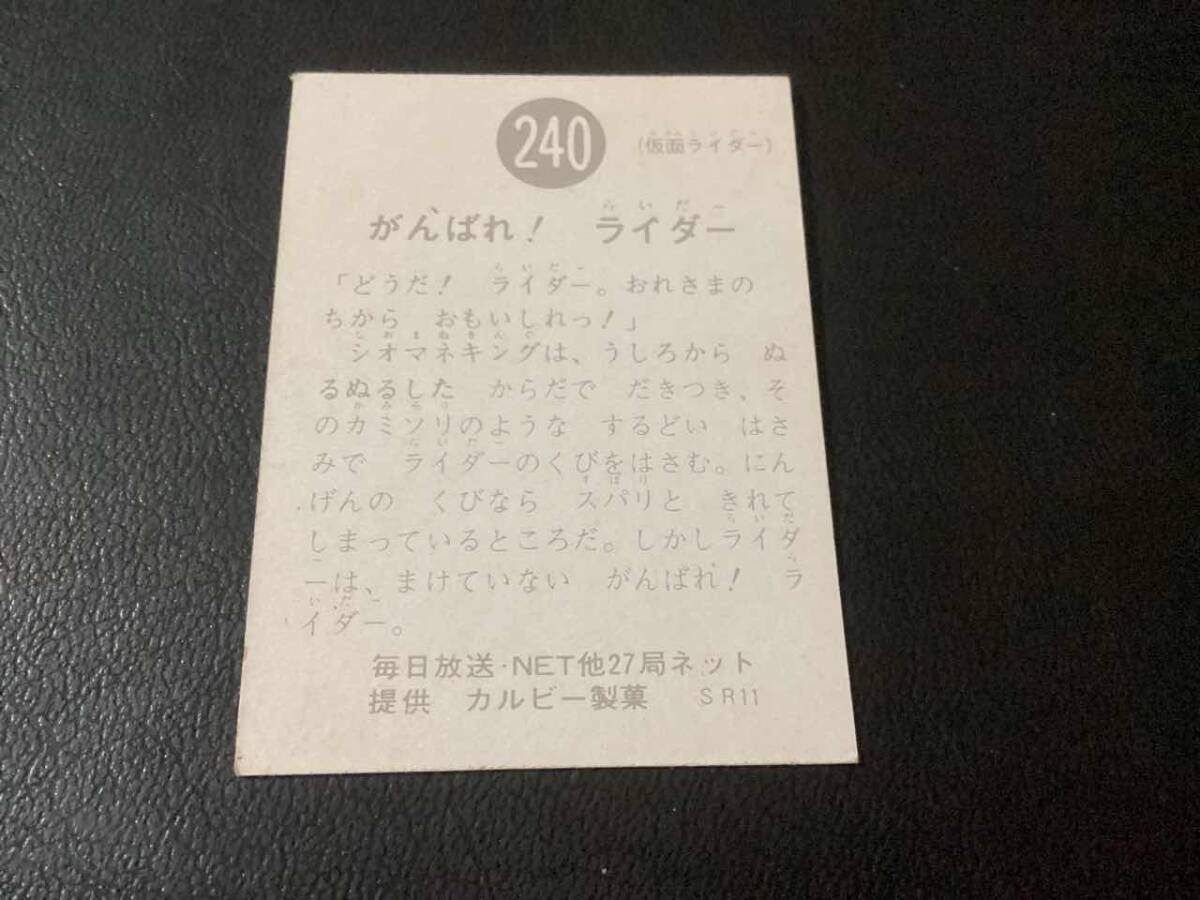 240
(仮面ライダー)
らいだー
がんばれ! ライダー
らいだー
「どうだ! ライダー。おれさまの
ちから おもいしれっ!」
しおまねきんぐ
シオマネキングは、うしろから ぬ
るぬるした からだで だきつき、そ
かみそり
のカミソリのような するどい はさ
らいだー
みで ライダーのくびをはさむ。にん
すぱり
げんの くびなら スパリと きれて
らいだ
しまっているところだ。しかしライダ
ー ら
ーは、まけていない がんばれ! ラ
いだー
イダー。
毎日放送・NET他27局ネット
提供 カルビー製菓 SR11